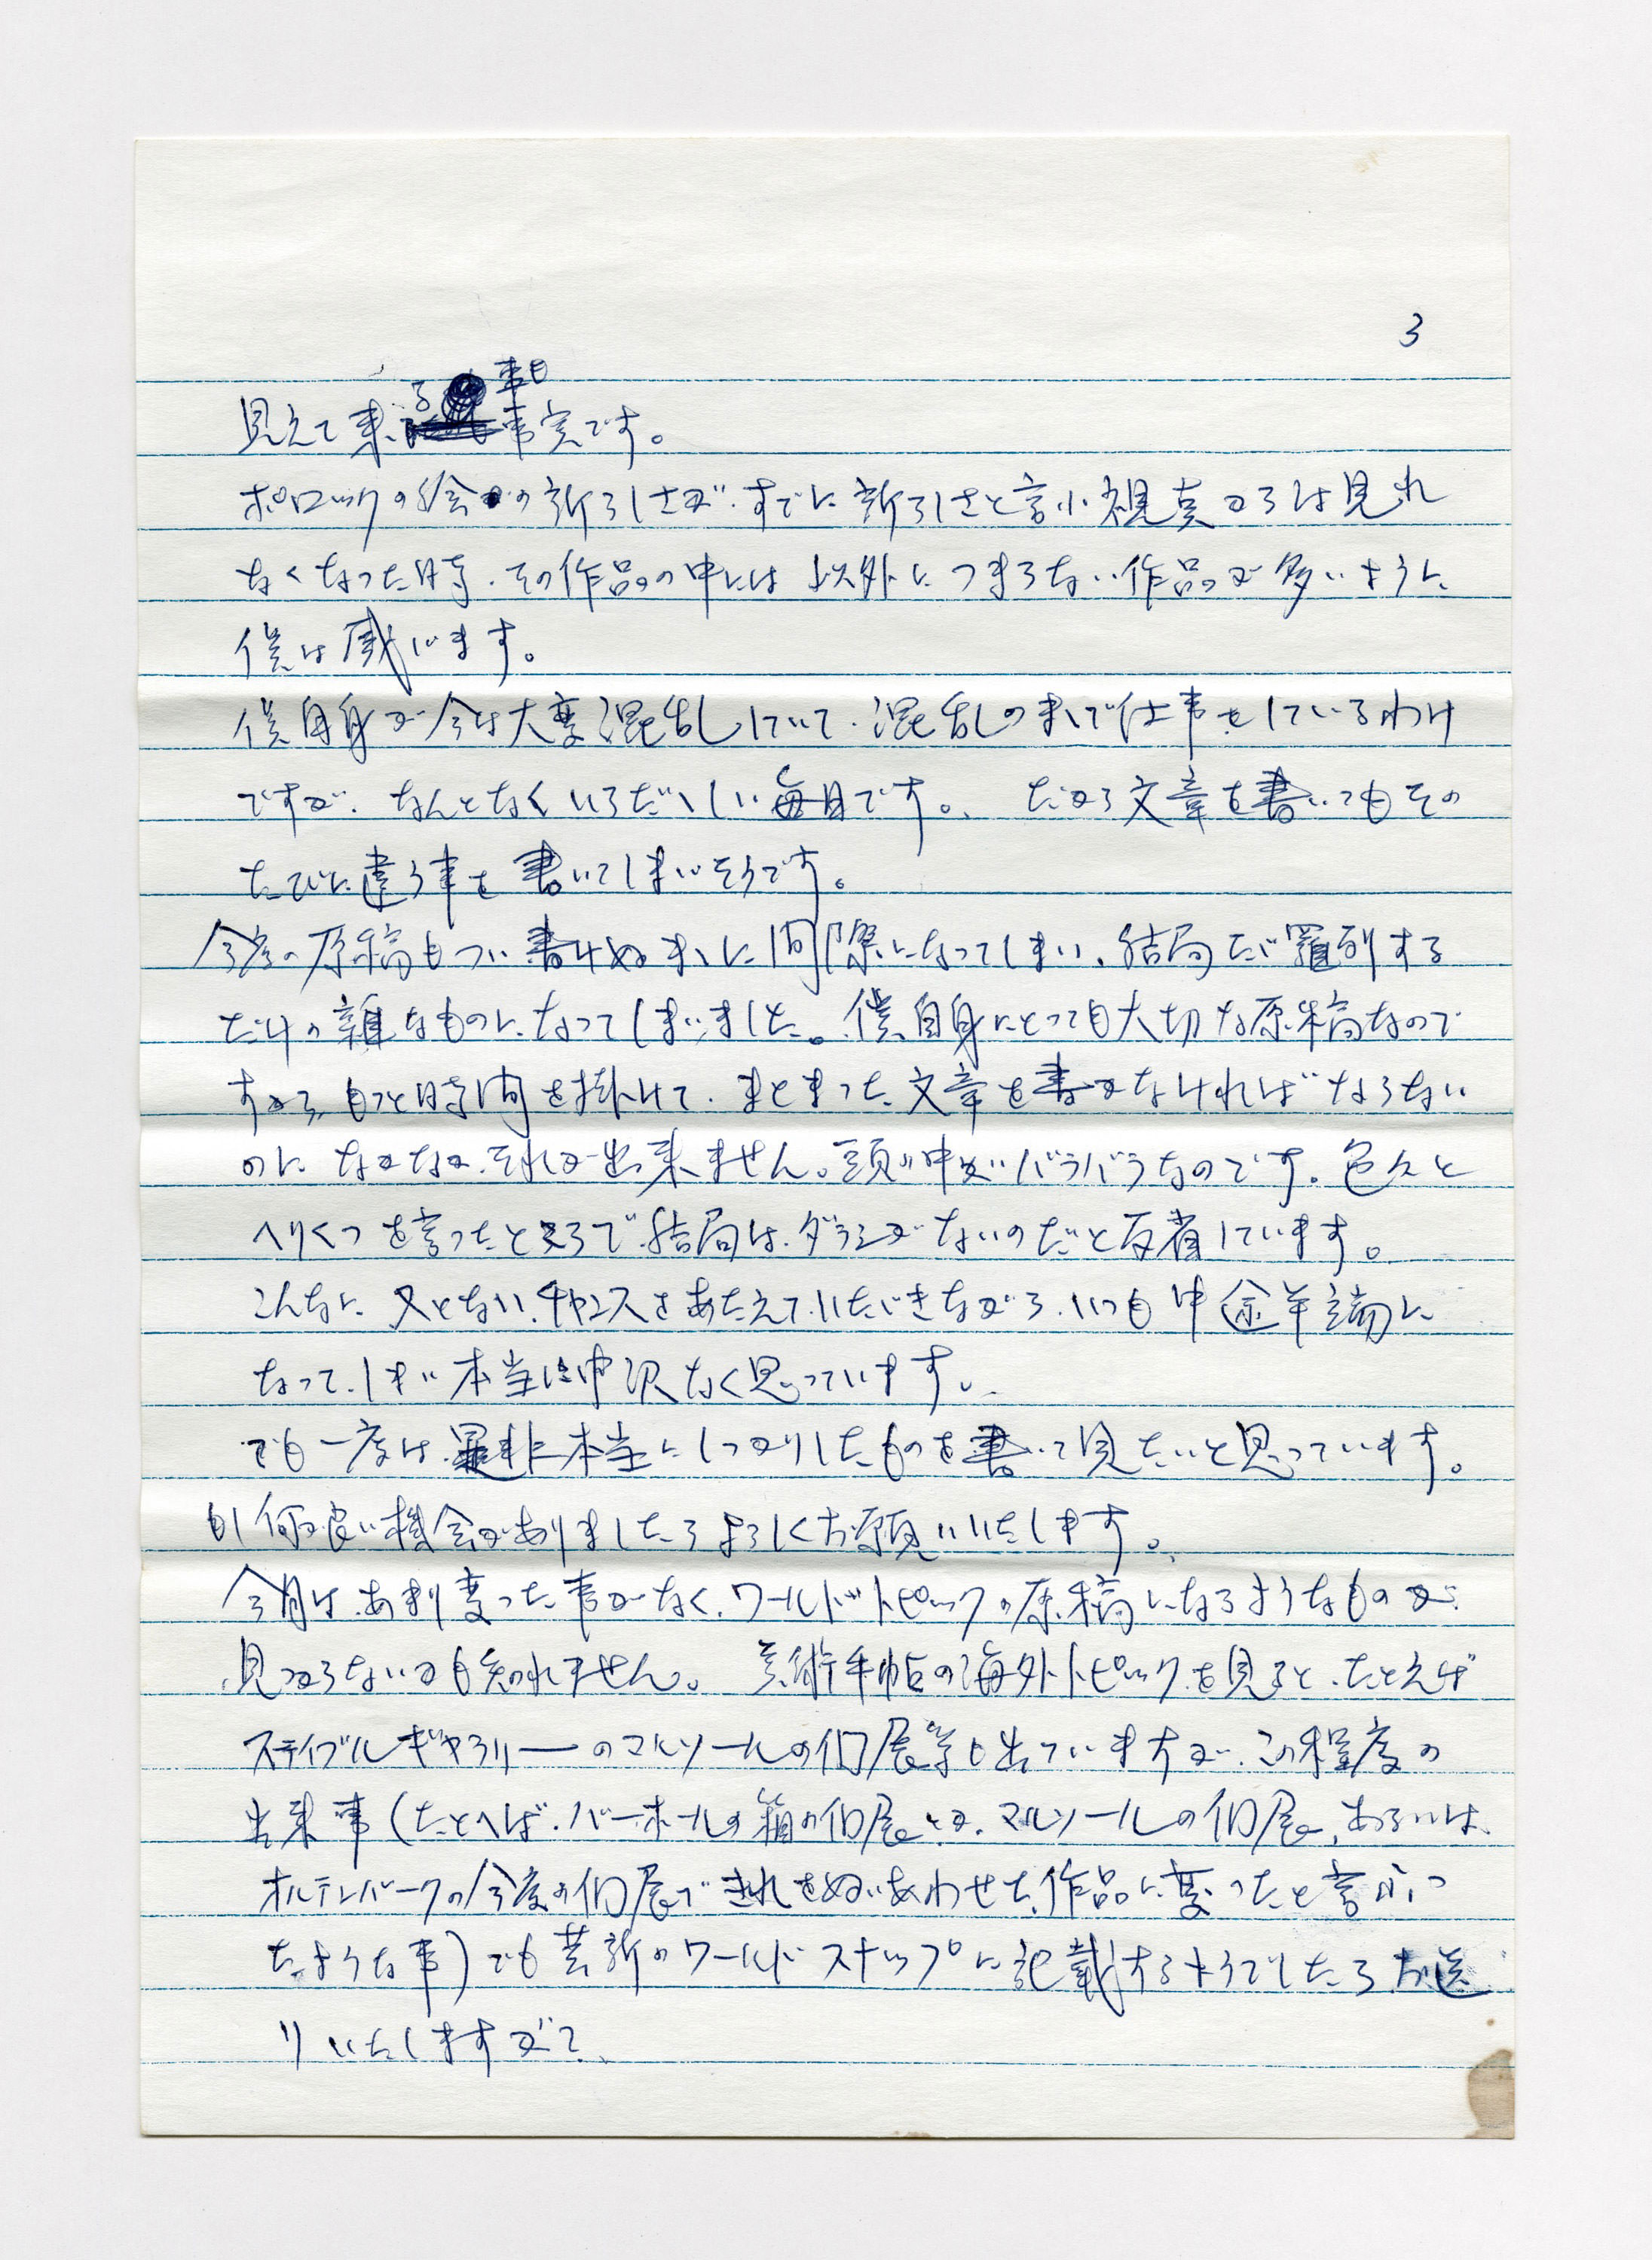 3
見えて来る事も事実です。
ポロックの絵の新らしさが、すでに新らしさと言ふ視点からは見れ
なくなった時、その作品の中には以外につまらない作品が多いように
僕は感じます。
僕自身が今は大変混乱していて、混乱のまゝで仕事をしているわけ
ですが、なんとなくいらだゝしい毎日です。だから文章を書いてもその
たびに違う事を書いてしまいそうです。
今度の原稿もつい書けぬまゝに間際になってしまい、結局たゞ羅列する
だけの雑なものになってしまいました。僕自身にとっても大切な原稿なので
すから、もっと時間を掛けて、まとまった文章を書かなければならない
のに なかなかそれが出来ません。頭の中がバラバラなのです。色々と
へりくつを言ったところで結局は、ダラシがないのだと反省しています。
こんなに、又とないチャンスをあたえていたゞきながら、いつも中途半端に
なってしまい本当に申訳なく思っています。
でも一度は是非本当にしっかりしたものを書いて見たいと思っています。
もし何か良い機会がありましたらよろしくお願いいたします。
今月は、あまり変った事がなく、ワールドトピックの原稿になるようなものが
見つからないかも知れません。美術手帖の海外トピックを見ると、たとえば
ステイブルギャラリーのマルソールの個展等も出ていますが、この程度の
出来事(たとへば、バーホールの箱の個展とか、マルソールの個展、あるいは、
オルデンバークの今度の個展できれをぬいあわせた作品に変ったと言ふ
たような事)でも芸新のワールドスナップに記載するようでしたらお送
りいたしますが?